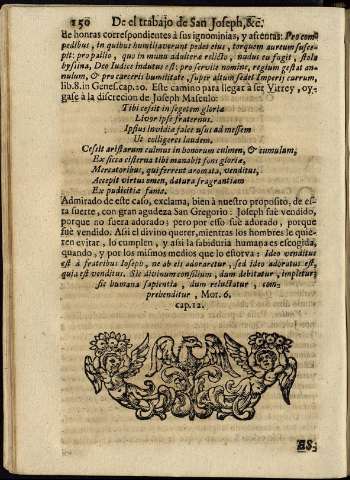 150 De el trabajo de San Joseph, &c.
de honras correspondientes à sus ignominias, y afrentas: Pro com
pedibus, in quibus humiliaverunt pedes eius, torquem aureum susce-
pit: pro pallio, quo in manu adulteræ relicto, nudus eu fugit, stola
byssina, Deo Iudice indutus est: pro servili nomine, regium gestat an-
nulum, & pro carceris humilitate, super altum sedet Imperij currum,
lib.8. in Genes. cap.20. Este camino para llegar à ser Virrey, oy-
gase à la discrecion de Joseph Masculo:
Tibi cessit in segetem gloriæ
Livor ipse fraternus.
Ipsius invidia falce usus ad messem
Ut colligeres laudem.
Cessit aristarum culmus in honorum culmen, & cumulum,
Ex sicca cisterna tibi manabit fons gloriæ,
Mercatoribus, qui ferrent aromata, venditus,
Accepit virtus omen, datura fragrantiam
Ex pudicitiæ fama.
Admirado de este caso, exclama, bien à nuestro proposito, de es-
ta suerte, con gran agudeza San Gregorio: Joseph fuè vendido,
porque no fuera adorado; pero por esso fuè adorado, porque
fuè vendido. Assi el divino querer, mientras los hombres le quie-
ren evitar, lo cumplen, y assi la sabiduria humana es escogida,
quando, y por los mismos medios que lo estorva: Ideo venditus
est à fratribus Joseph, ne ab eis adoraretur, sed ideo adoratus est,
quia est venditus. Sic divinum consilium, dum debitatur, impletur;
sic humana sapientia, dum reluctatur, com-
prehenditur, Mor. 6.
cap. 12.
ES-